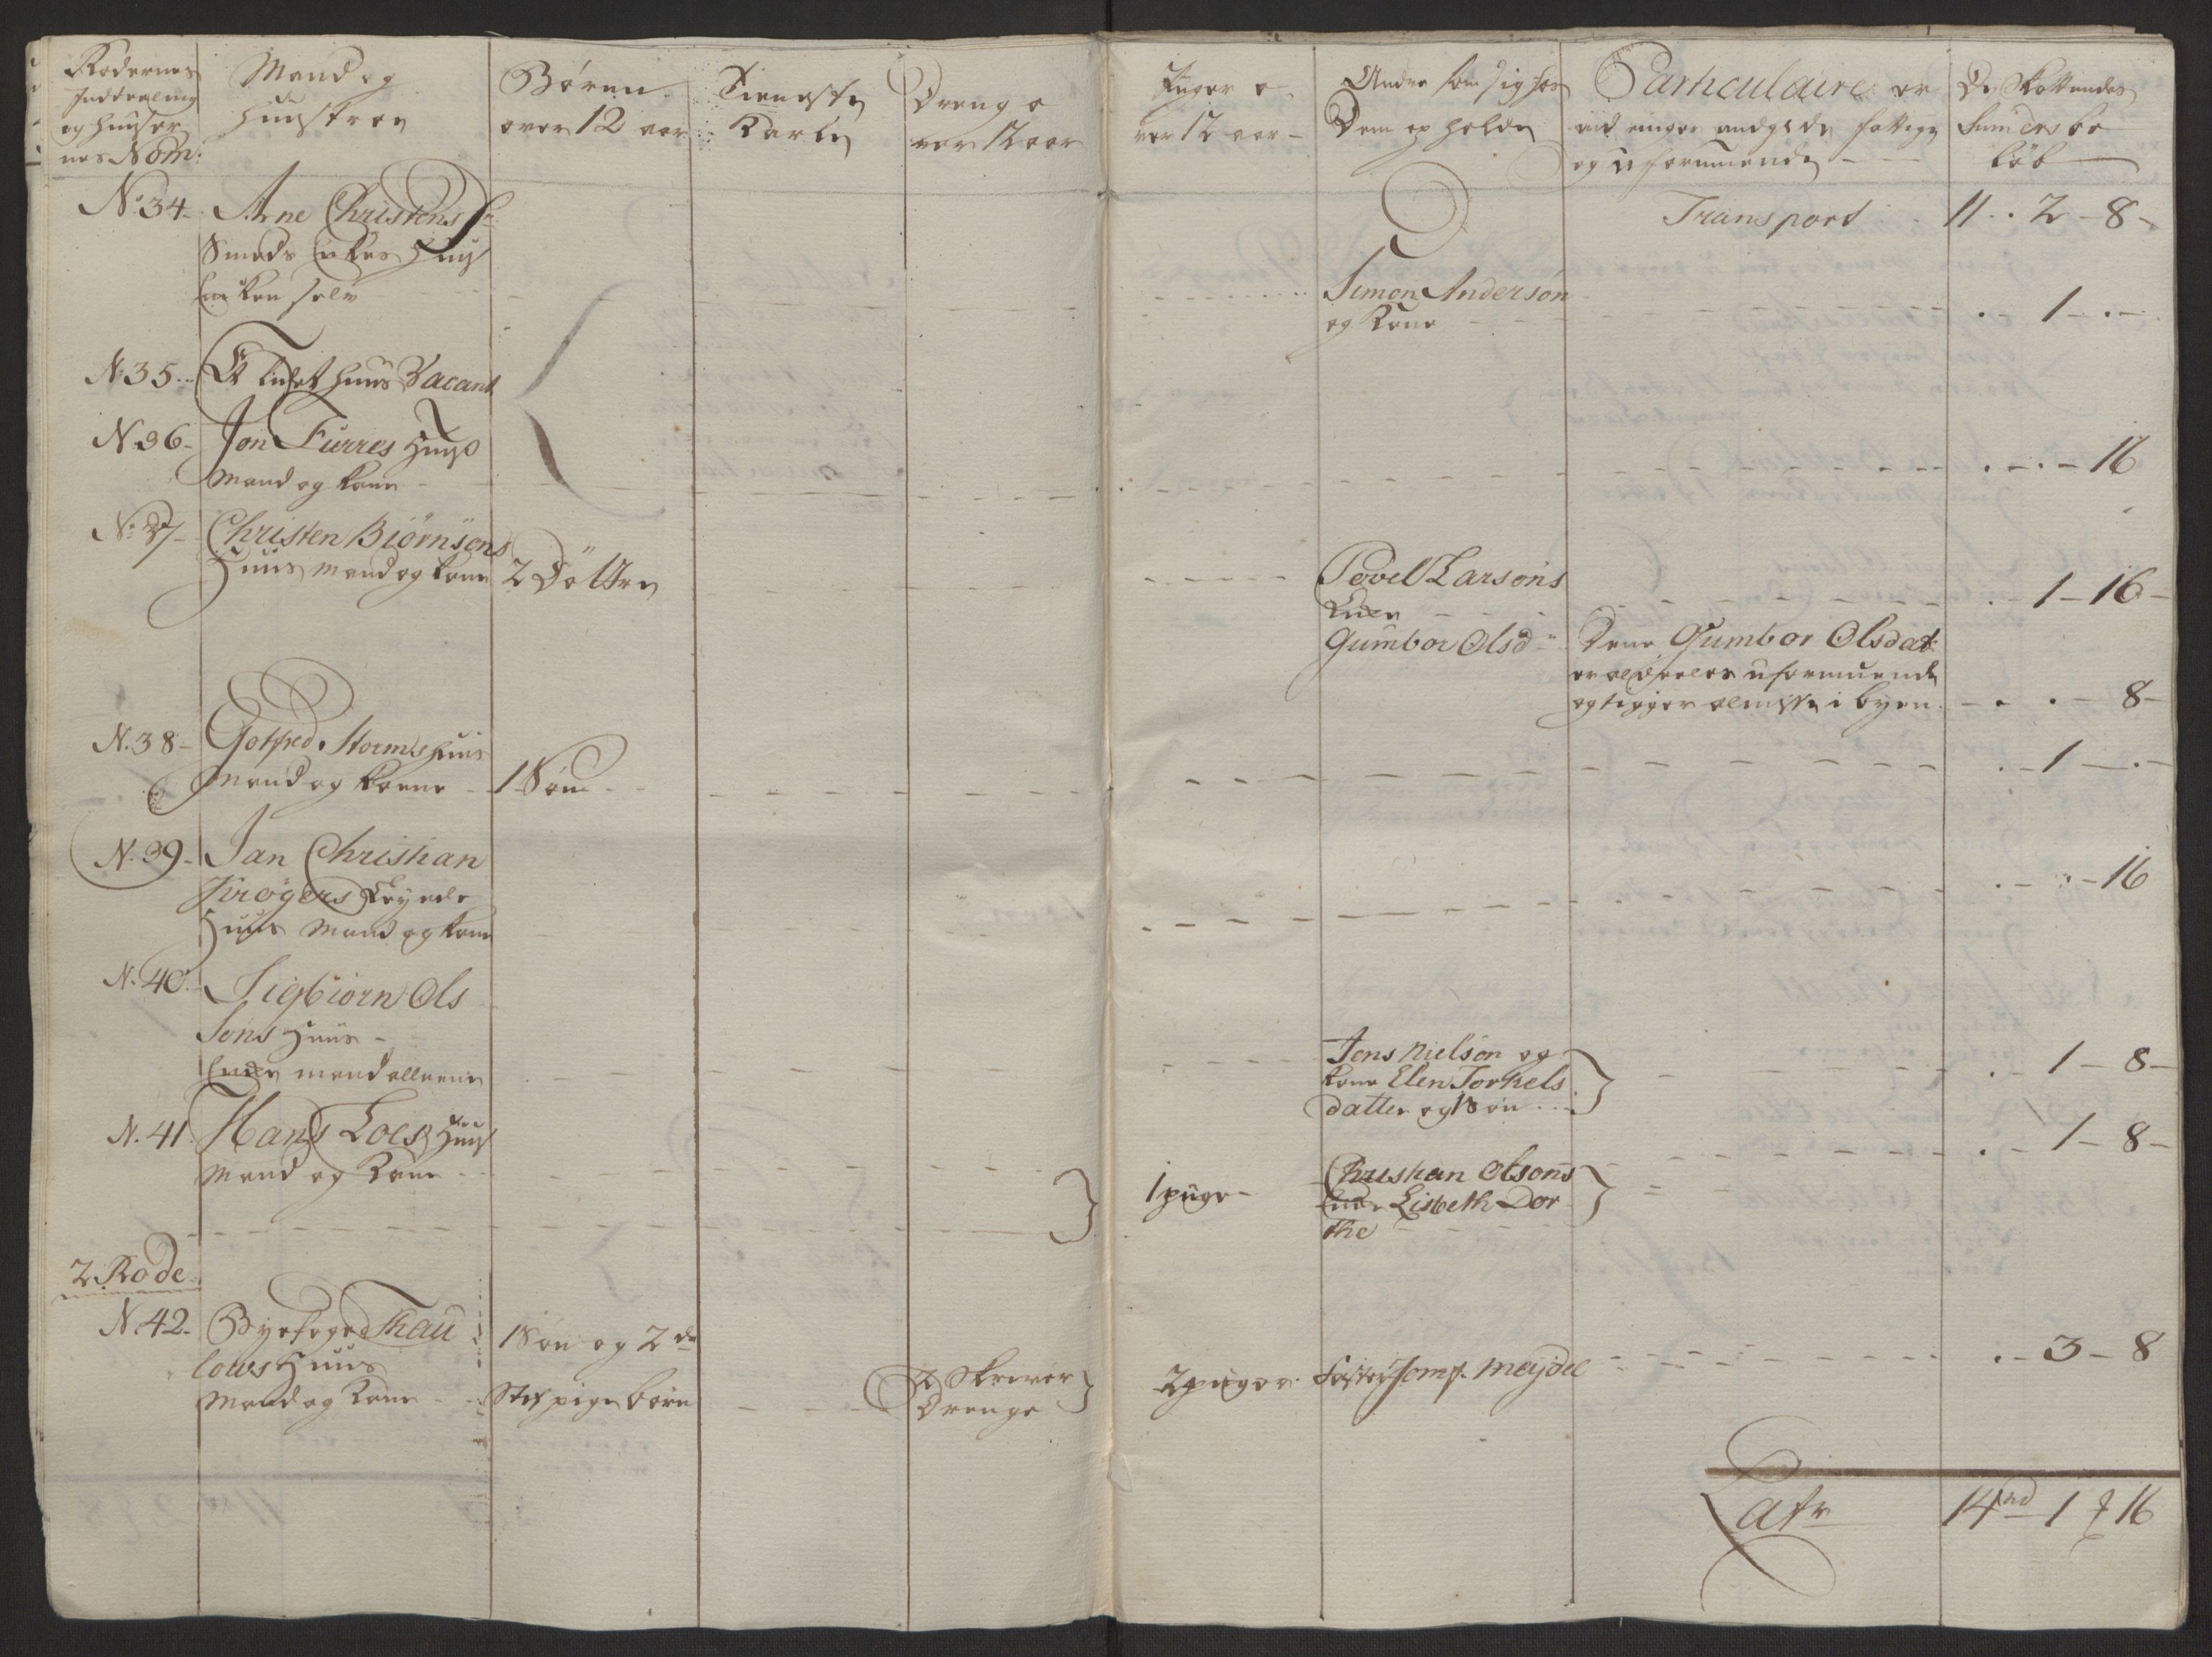 Rodernes
Inddeeling
og huuser
nes Nom:
Mand og
Hustroe
Børn
over 12 aar
Tieneste
Karle
Drenge o
ver 12 aar
Piiger o
ver 12 aar
Andre som sig hos
Dem op holder
Particulaire er
og uformuende
De Skattendes
Sumers be
løb
Transport 11 .. 2 - 8 -
No 34 Ane Christens
Smeds Enkes Huus
Enken selv
Simon Anderson
og Kone
1
N. 35 Et lidet huus Vacant
N. 36 Jon Furres Huus
Mand og Kone
16
No. 37 Christen Biørnsøns
Huus Mand og Kone 2 Døttre
Povel Larsøns
Enke
1 - 16
Gumbor Olsd
Dene Gumbor Olsdat:
er alldeeles uformuende
og tigger almisse i byen
8
N. 38 Gotfred Storms huus
Mand og Kone 1 Søn
1
N. 39 Jan Christian
Krøgers Leyede
Huus Mand og Kone
16
N. 40 Sigbiørn Ols
Søns Huus
Enke mand alleene
Jens Nielsøn og
Kone Elen Torkels
datter og 1 Søn
1 - 8 -
N. 41 Hans Loes Huus
Mand og Kone
1 piige
Christian Olsøns
Enke Lisbeth Dor
the
1 - 8 -
2 Rode
N. 42 Byefoged Thau
lows Huus
Mand og Kone
1 Søn og 2de
Stif pige børn
Skriver
Drenge
2 piiger
Søster Jomf. Meydel
3 - 8
Latr 14 rd 1 16